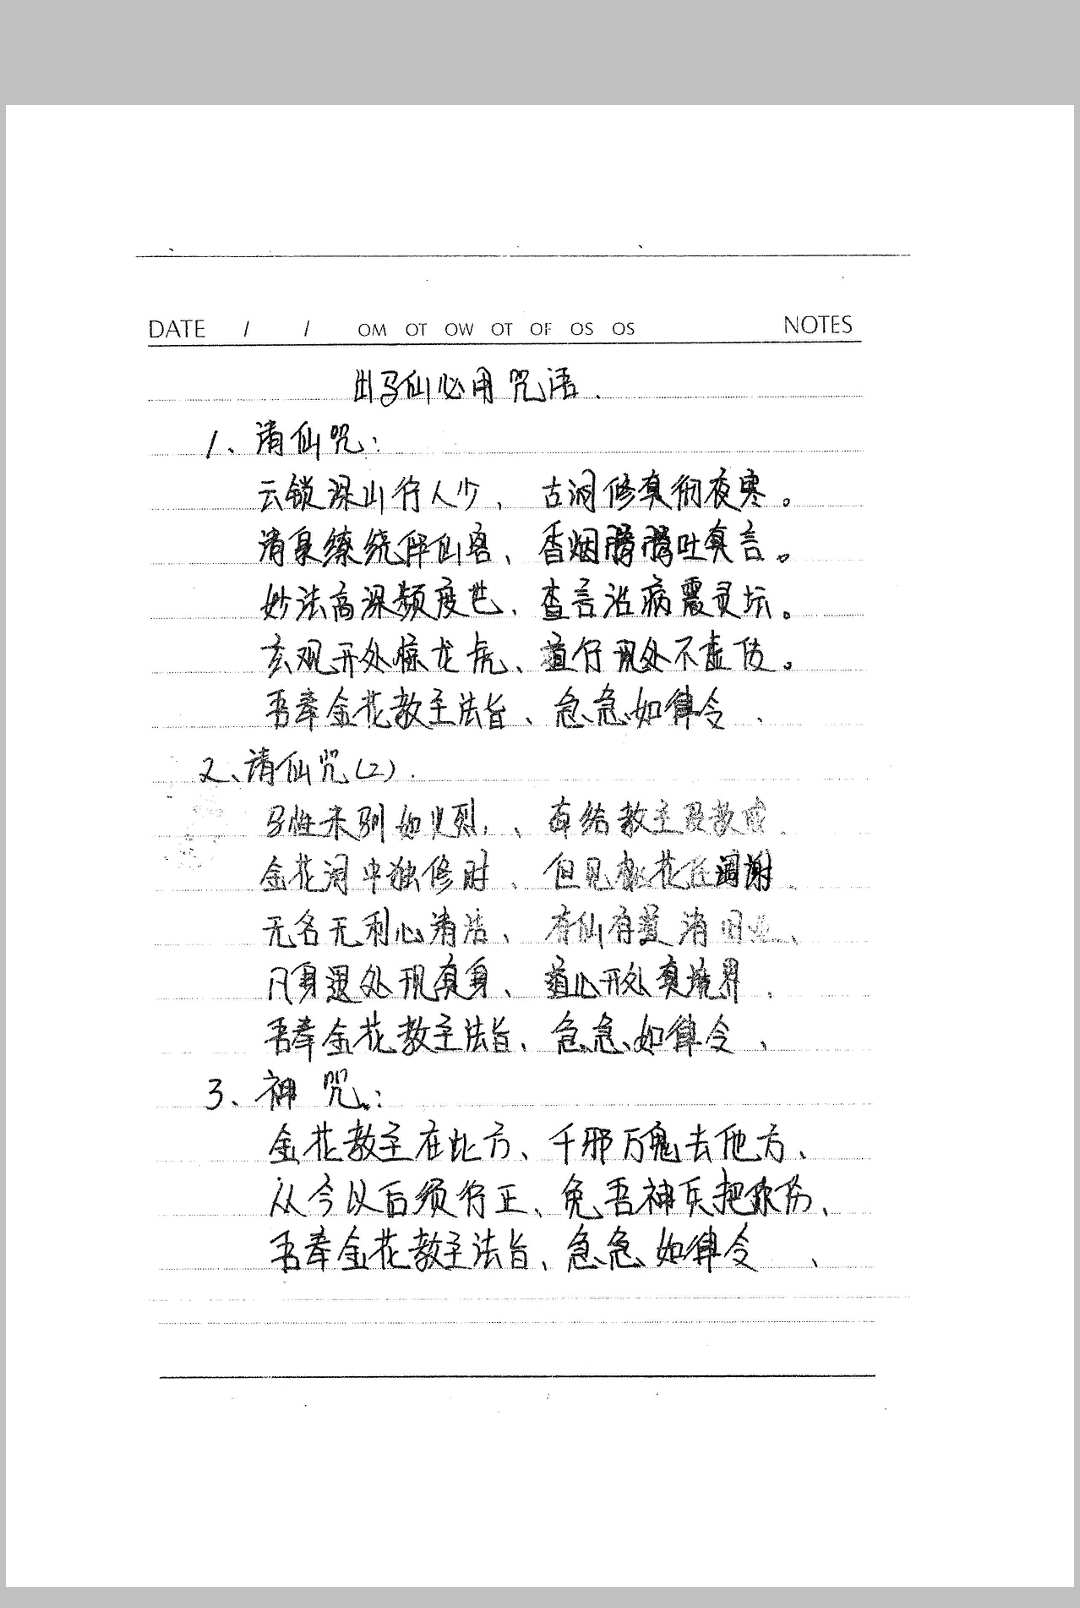 DATE / / OM OT OW OT OF OS OS NOTES
出马仙必用咒语.
1、清仙咒:
云锁深山行人少、古洞修真彻夜寒。
清泉缭绕伴仙客、香烟腾腾吐真言。
妙法高深频度世、查言治病震灵坛。
玄观开处惊龙虎、道行现处不虚传。
吾奉金花教主法旨、急急如律令、
2、请仙咒(2).
马性未驯如火烈、幸结教主
金花洞中独修时、但见花凋谢、
无名无利心清洁、有仙有道消
凡身退处现真身、道心开处真境界、
吾奉金花教主法旨、急急如律令、
3、神咒:
金花教主在此方、千邪万鬼去他方、
从今以后须行正、免吾神兵把你伤、
吾奉金花教主法旨、急急如律令、